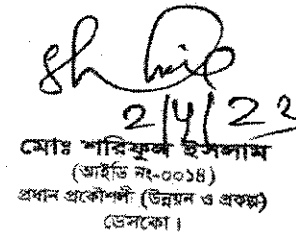 2/4/23
মোঃ শরিফুল ইসলাম
(আইডি নং-০০১৪)
প্রধান প্রকৌশলী (উন্নয়ন ও প্রকল্প)
ডেসকো।